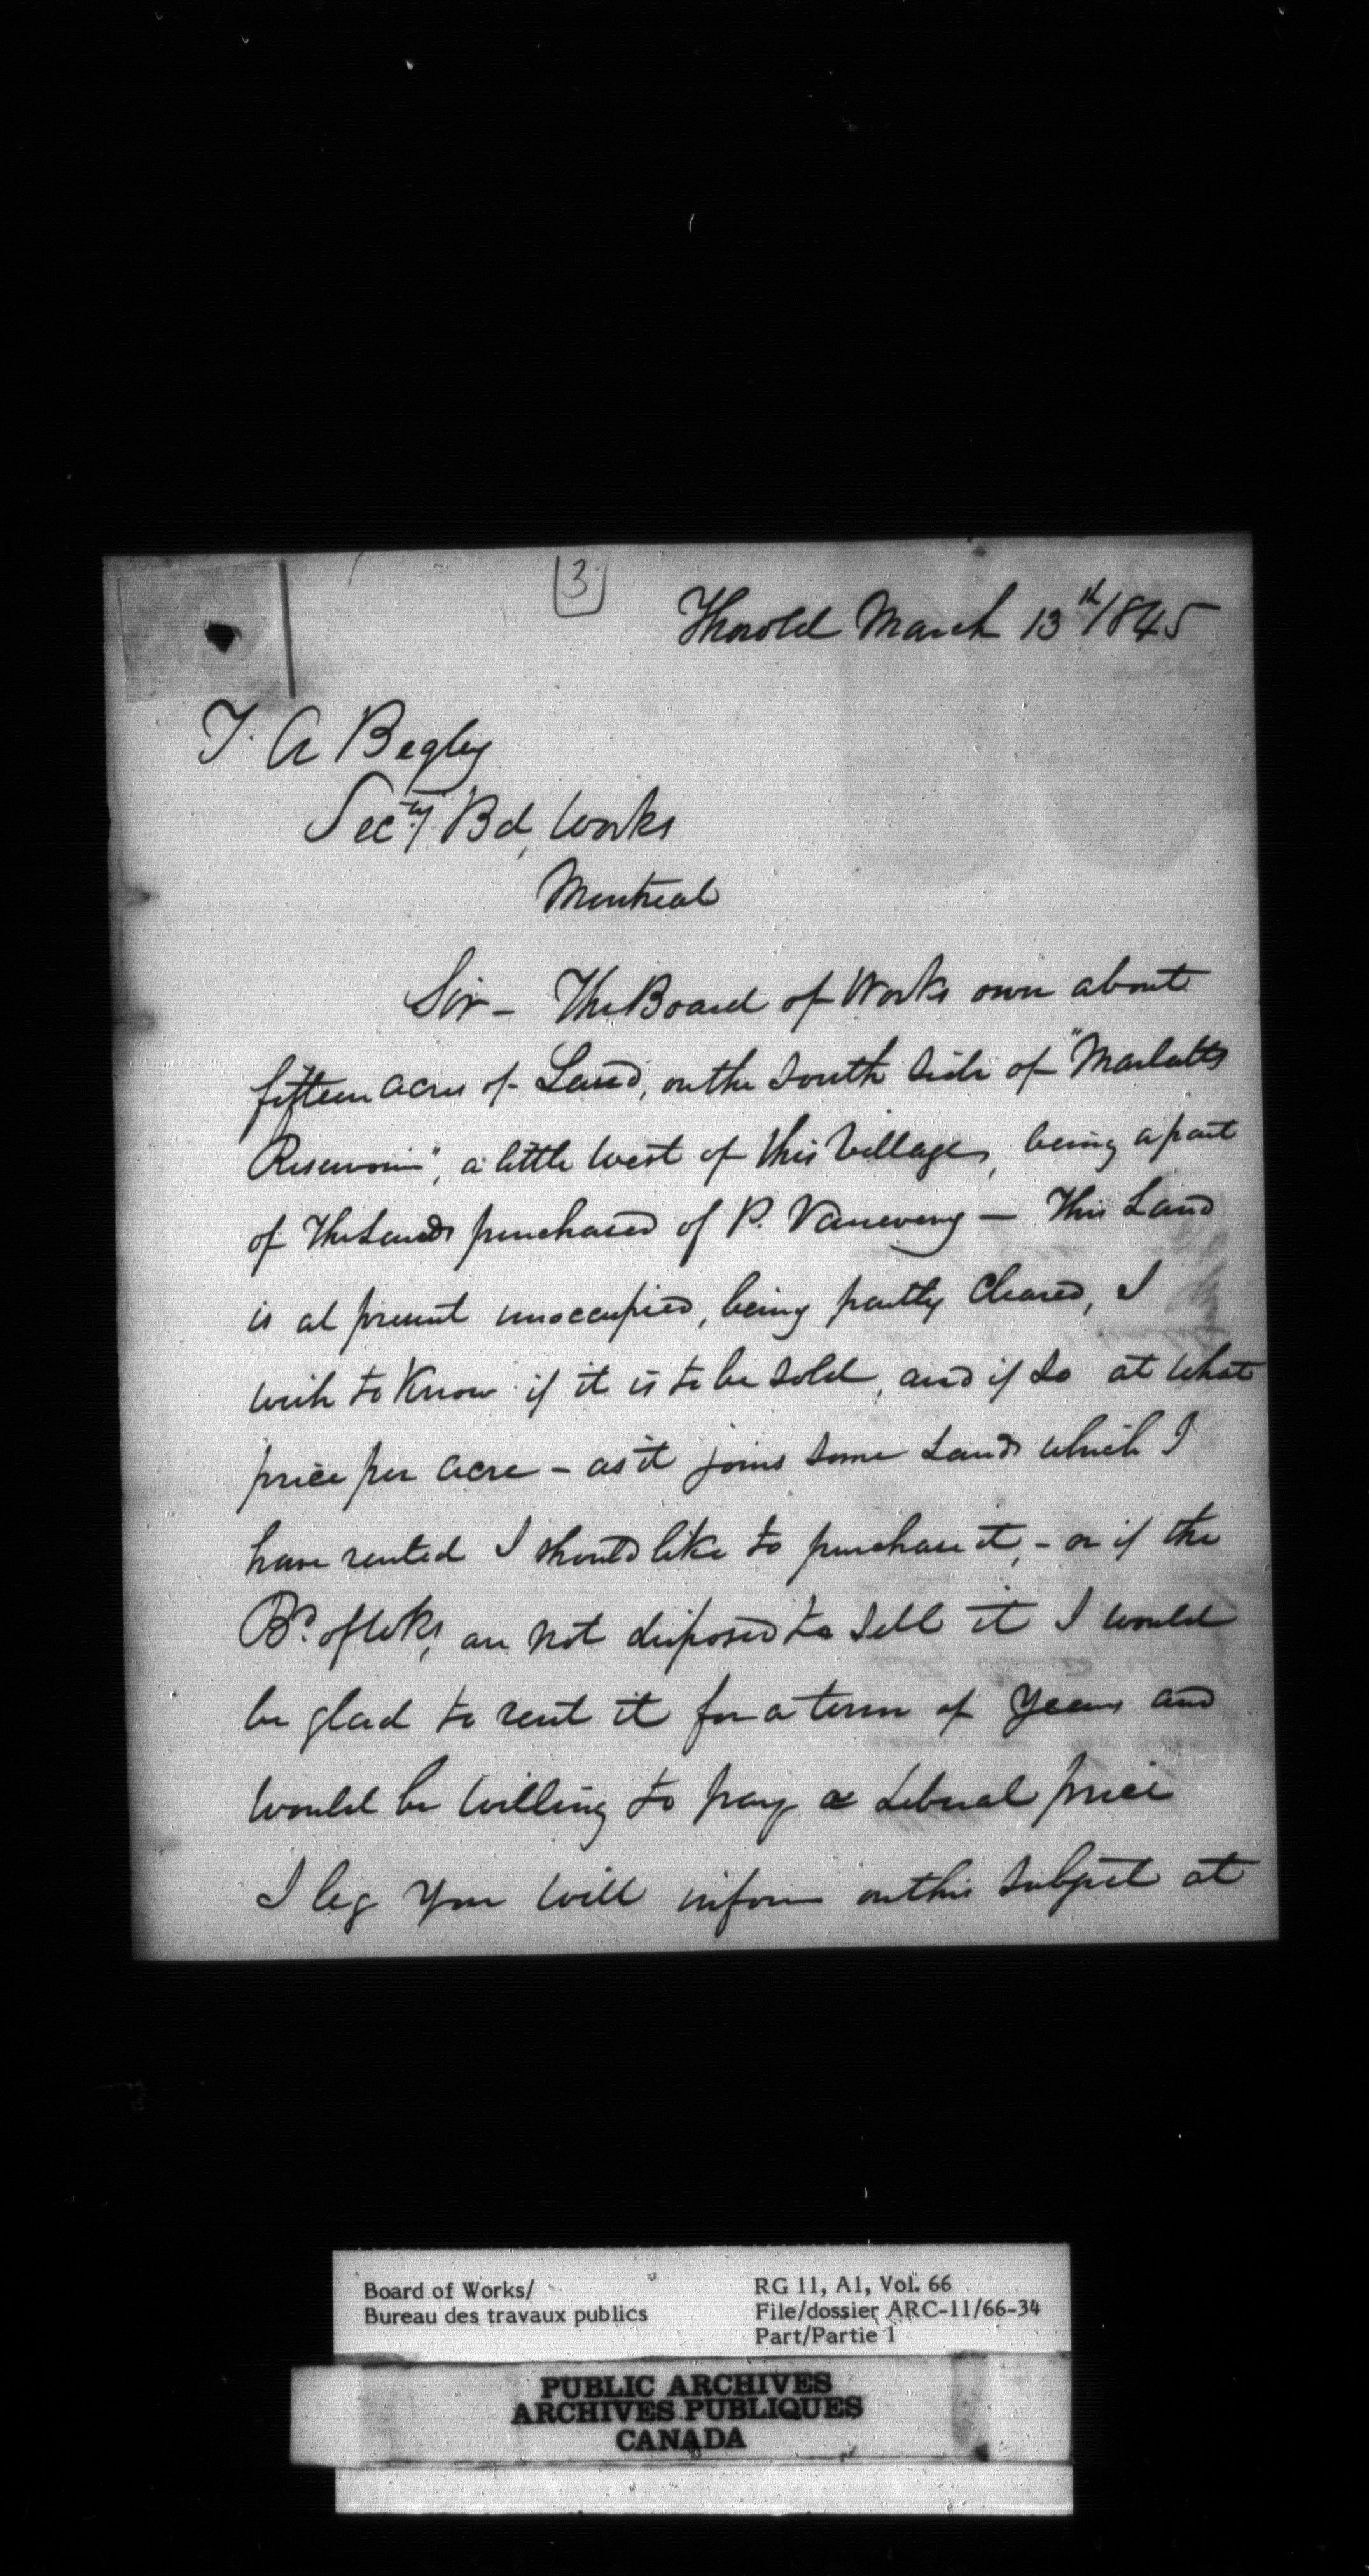 3
Thorold March 13th/1845
T. A Begley
Secty Bd, Works
Montreal
Sir - The Board of Works own about
fifteen acres of Land, on the South Side of "Marlatts
Reservoir", a little West of this Village, being a part
of The Lands purchased of P. Vanevery - This Land
is at present unoccupied, being partly Cleared, I
wish to Know if it is to be Sold, and if So at What
price per acre - as it joins Some Lands which I
have rented I should like to purchase it, - or if the
Bd. of Wks, are not disposed to Sell it I would
be glad to rent it for a term of Years and
Would be Willing to pay a Liberal price
I beg You Will inform on this Subject at
Board of Works/
Bureau des travaux publics
RG 11, A1, Vol. 66
File/dossier ARC-11/66-34
Part/Partie 1
PUBLIC ARCHIVES
ARCHIVES PUBLIQUES
CANADA